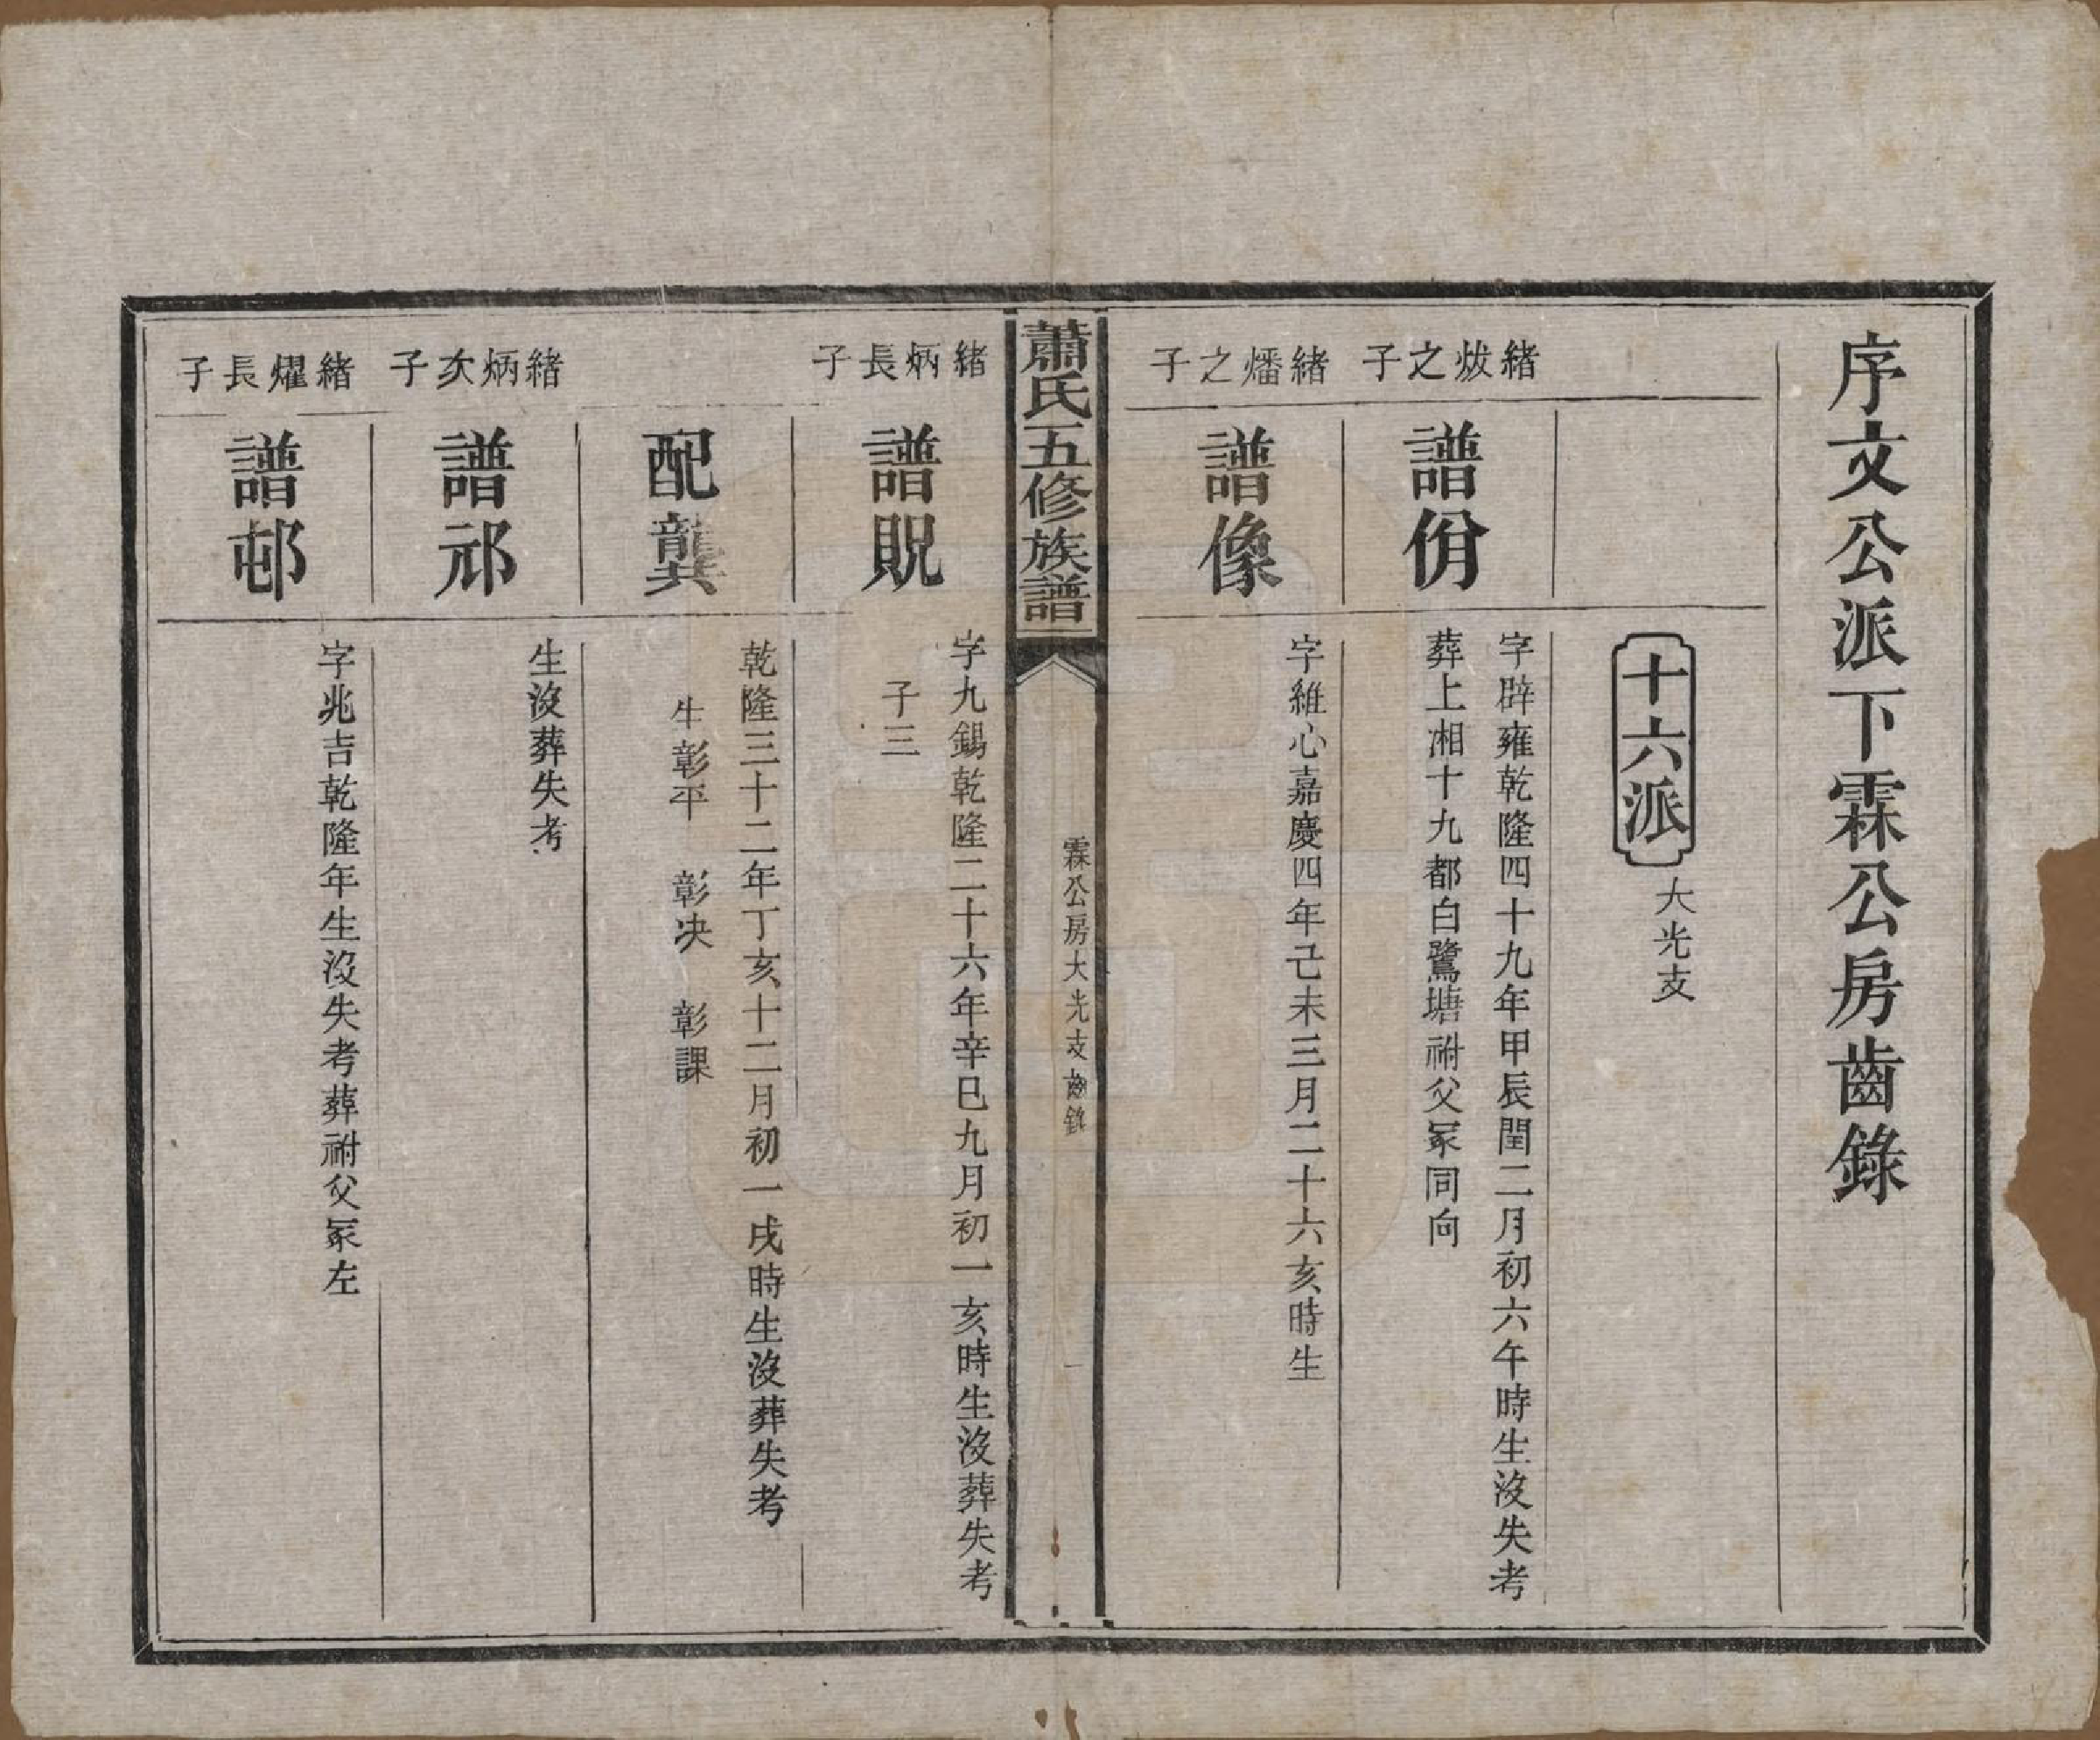 序文公派下霖公房齒錄
十六派
大光支
緒炦之子
譜佾
字辟雍乾隆四十九年甲辰閏二月初六午時生沒失考
葬上湘十九都白鷺塘祔父冢同向
緒燔之子
譜像
字維心嘉慶四年己未三月二十六亥時生
蕭氏五修族譜
霖公房大光支齒錄
一
緒炳長子
譜貺
字九錫乾隆二十六年辛巳九月初一亥時生沒葬失考
子三
配龔
乾隆三十二年丁亥十二月初一戌時生沒葬失考
生彰平 彰決 彰課
緒炳次子
譜祁
生沒葬失考
緒燿長子
譜邨
字兆吉乾隆年生沒失考葬祔父冢左